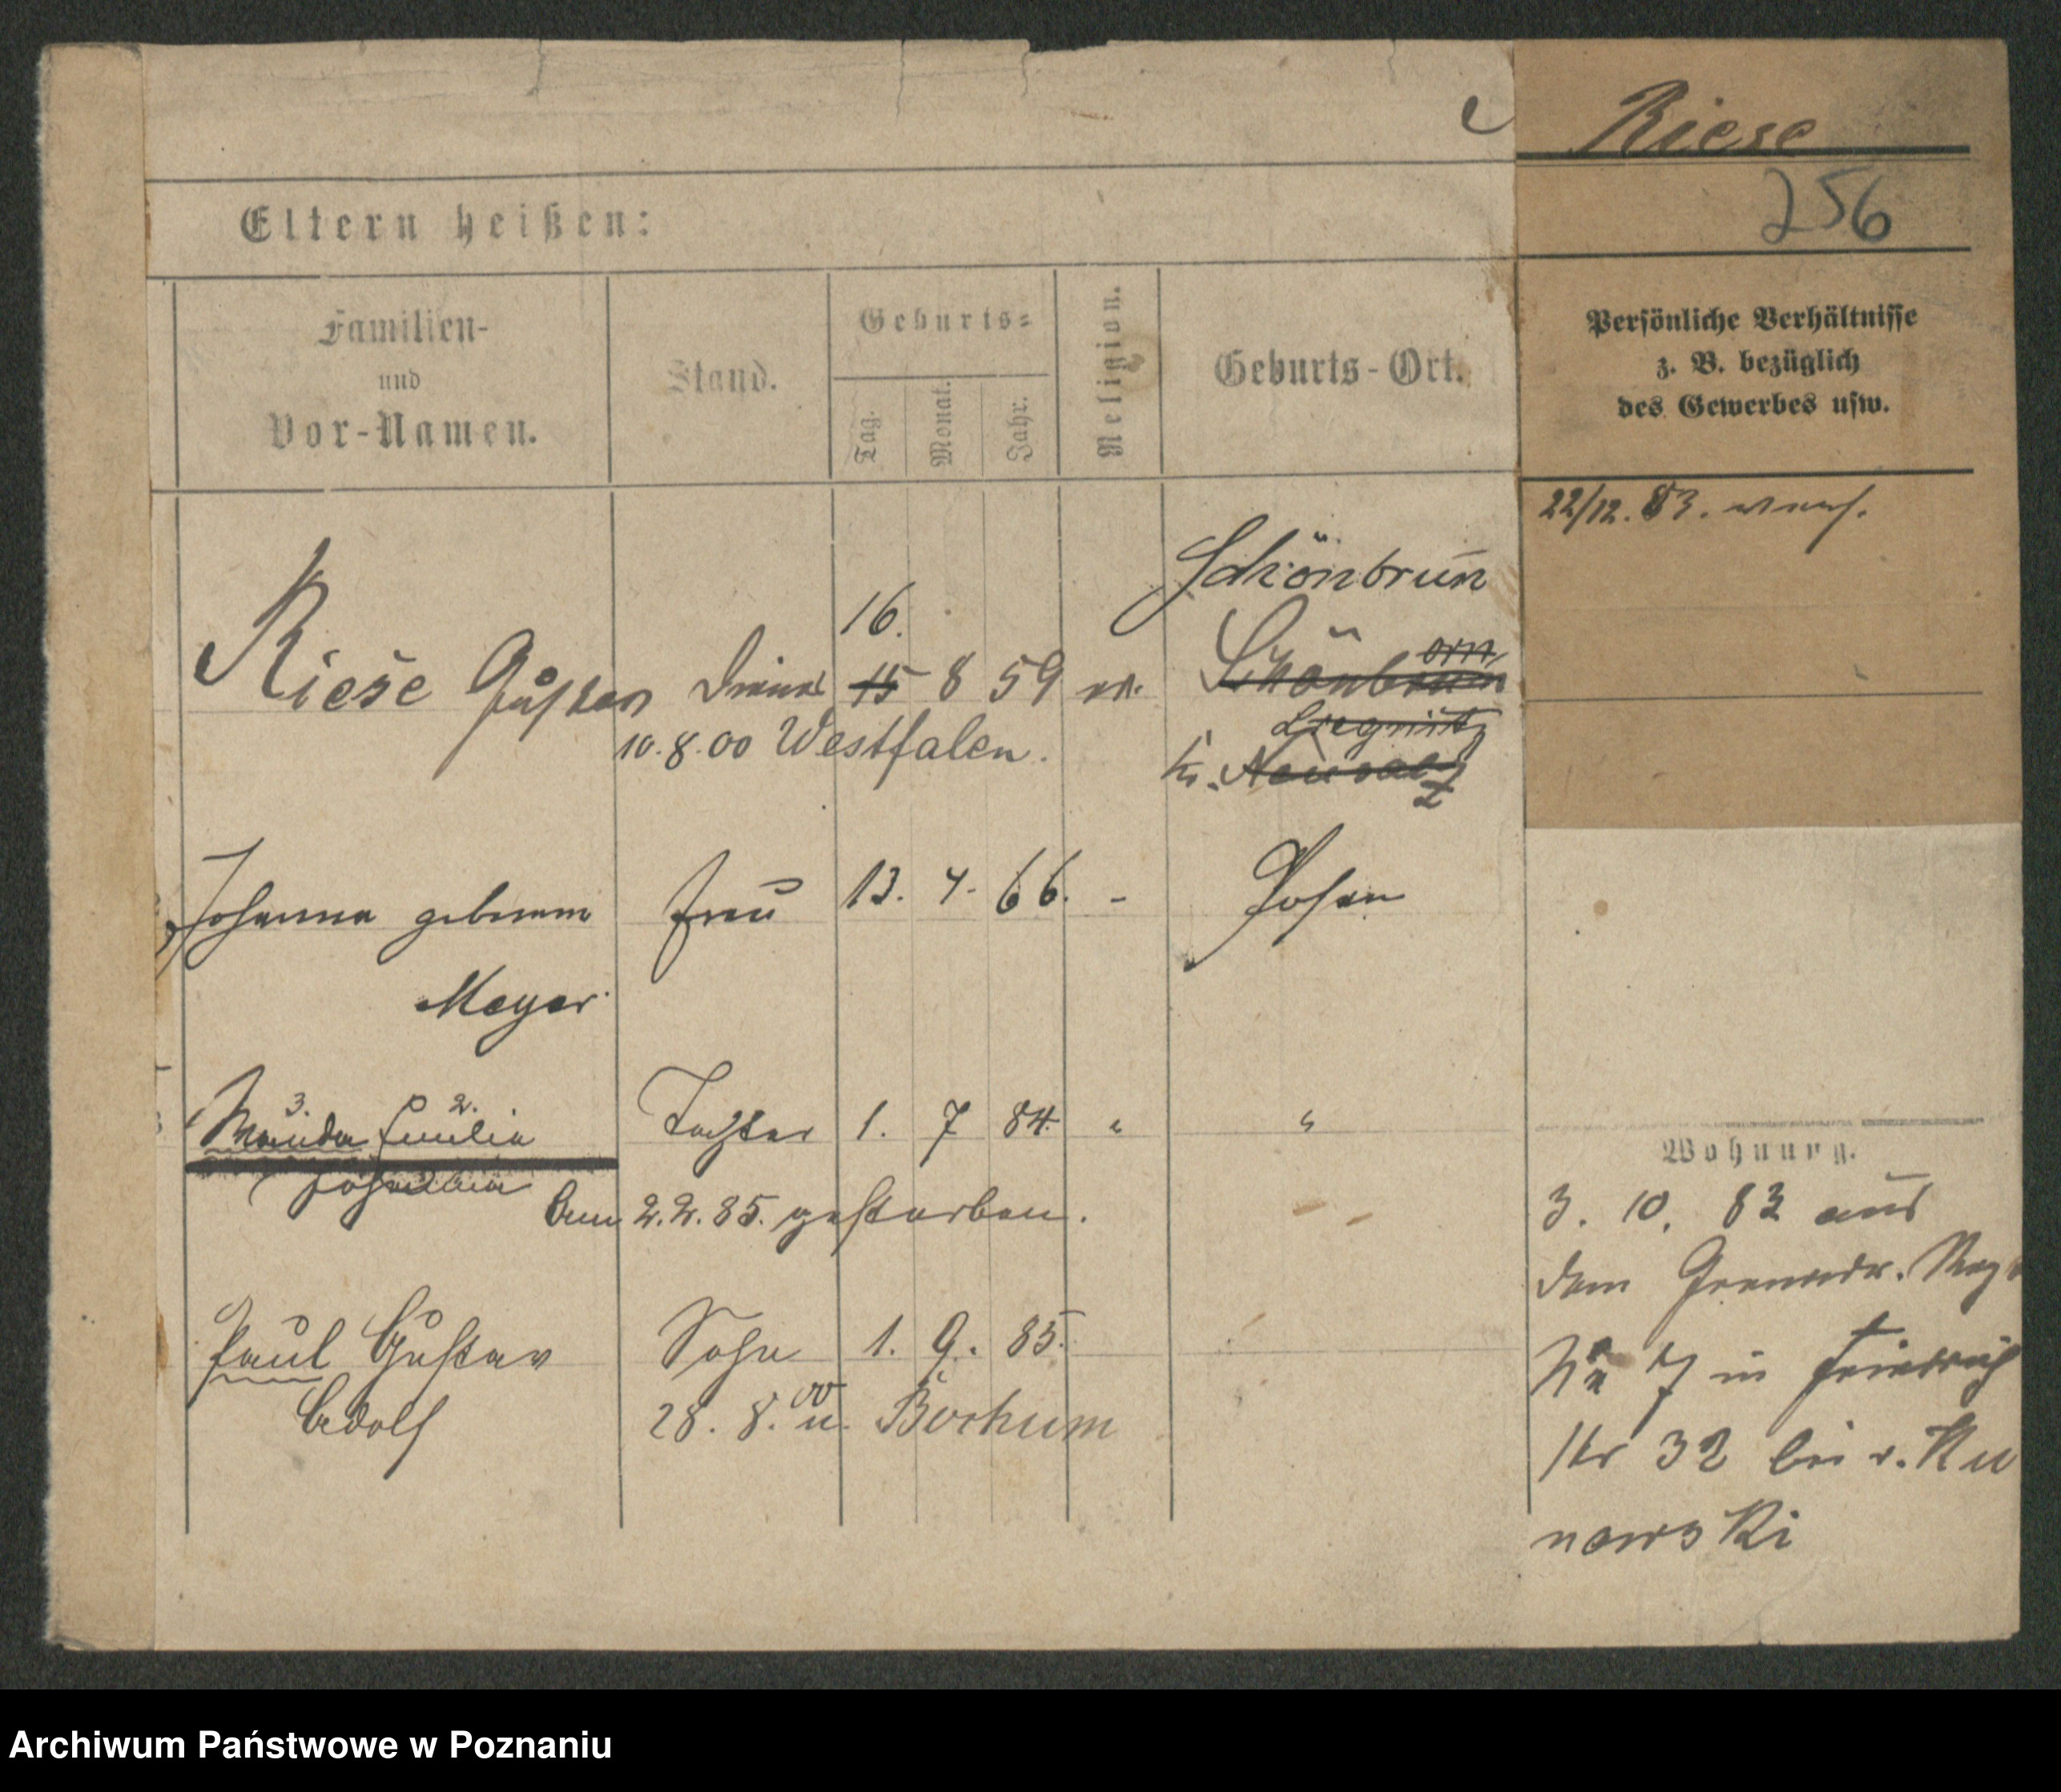 Riese
256
Eltern heißen:
Familien-
und
Vor-Namen.
Stand.
Geburts-
Tag.
Monat.
Jahr.
Religion.
Geburts-Ort.
Persönliche Verhältnisse
z. B. bezüglich
des Gewerbes usw.
22/12. 83.
Schönbrunn
16.
Riese Gustav Diener 15 8 59 ev.
Schönbrunn
orn
Liegnitz
10.8.00 Westfalen.
Kr. Neusalz
Johanna geborene Frau 13. 4. 66. - Posen
Meyer
3. 2.
Wanda Emilie Tochter 1. 7 84. " "
Johanna
Am 2.2.85. gestorben.
Paul Gustav Sohn 1. 9. 85.
Adolf 28. 8. 00 n. Bochum
Wohnung.
3. 10. 83 aus
dem Grenadr. Reg
No 7 in Friedrich
str 32 bei v. Ku
nowski
Archiwum Państwowe w Poznaniu